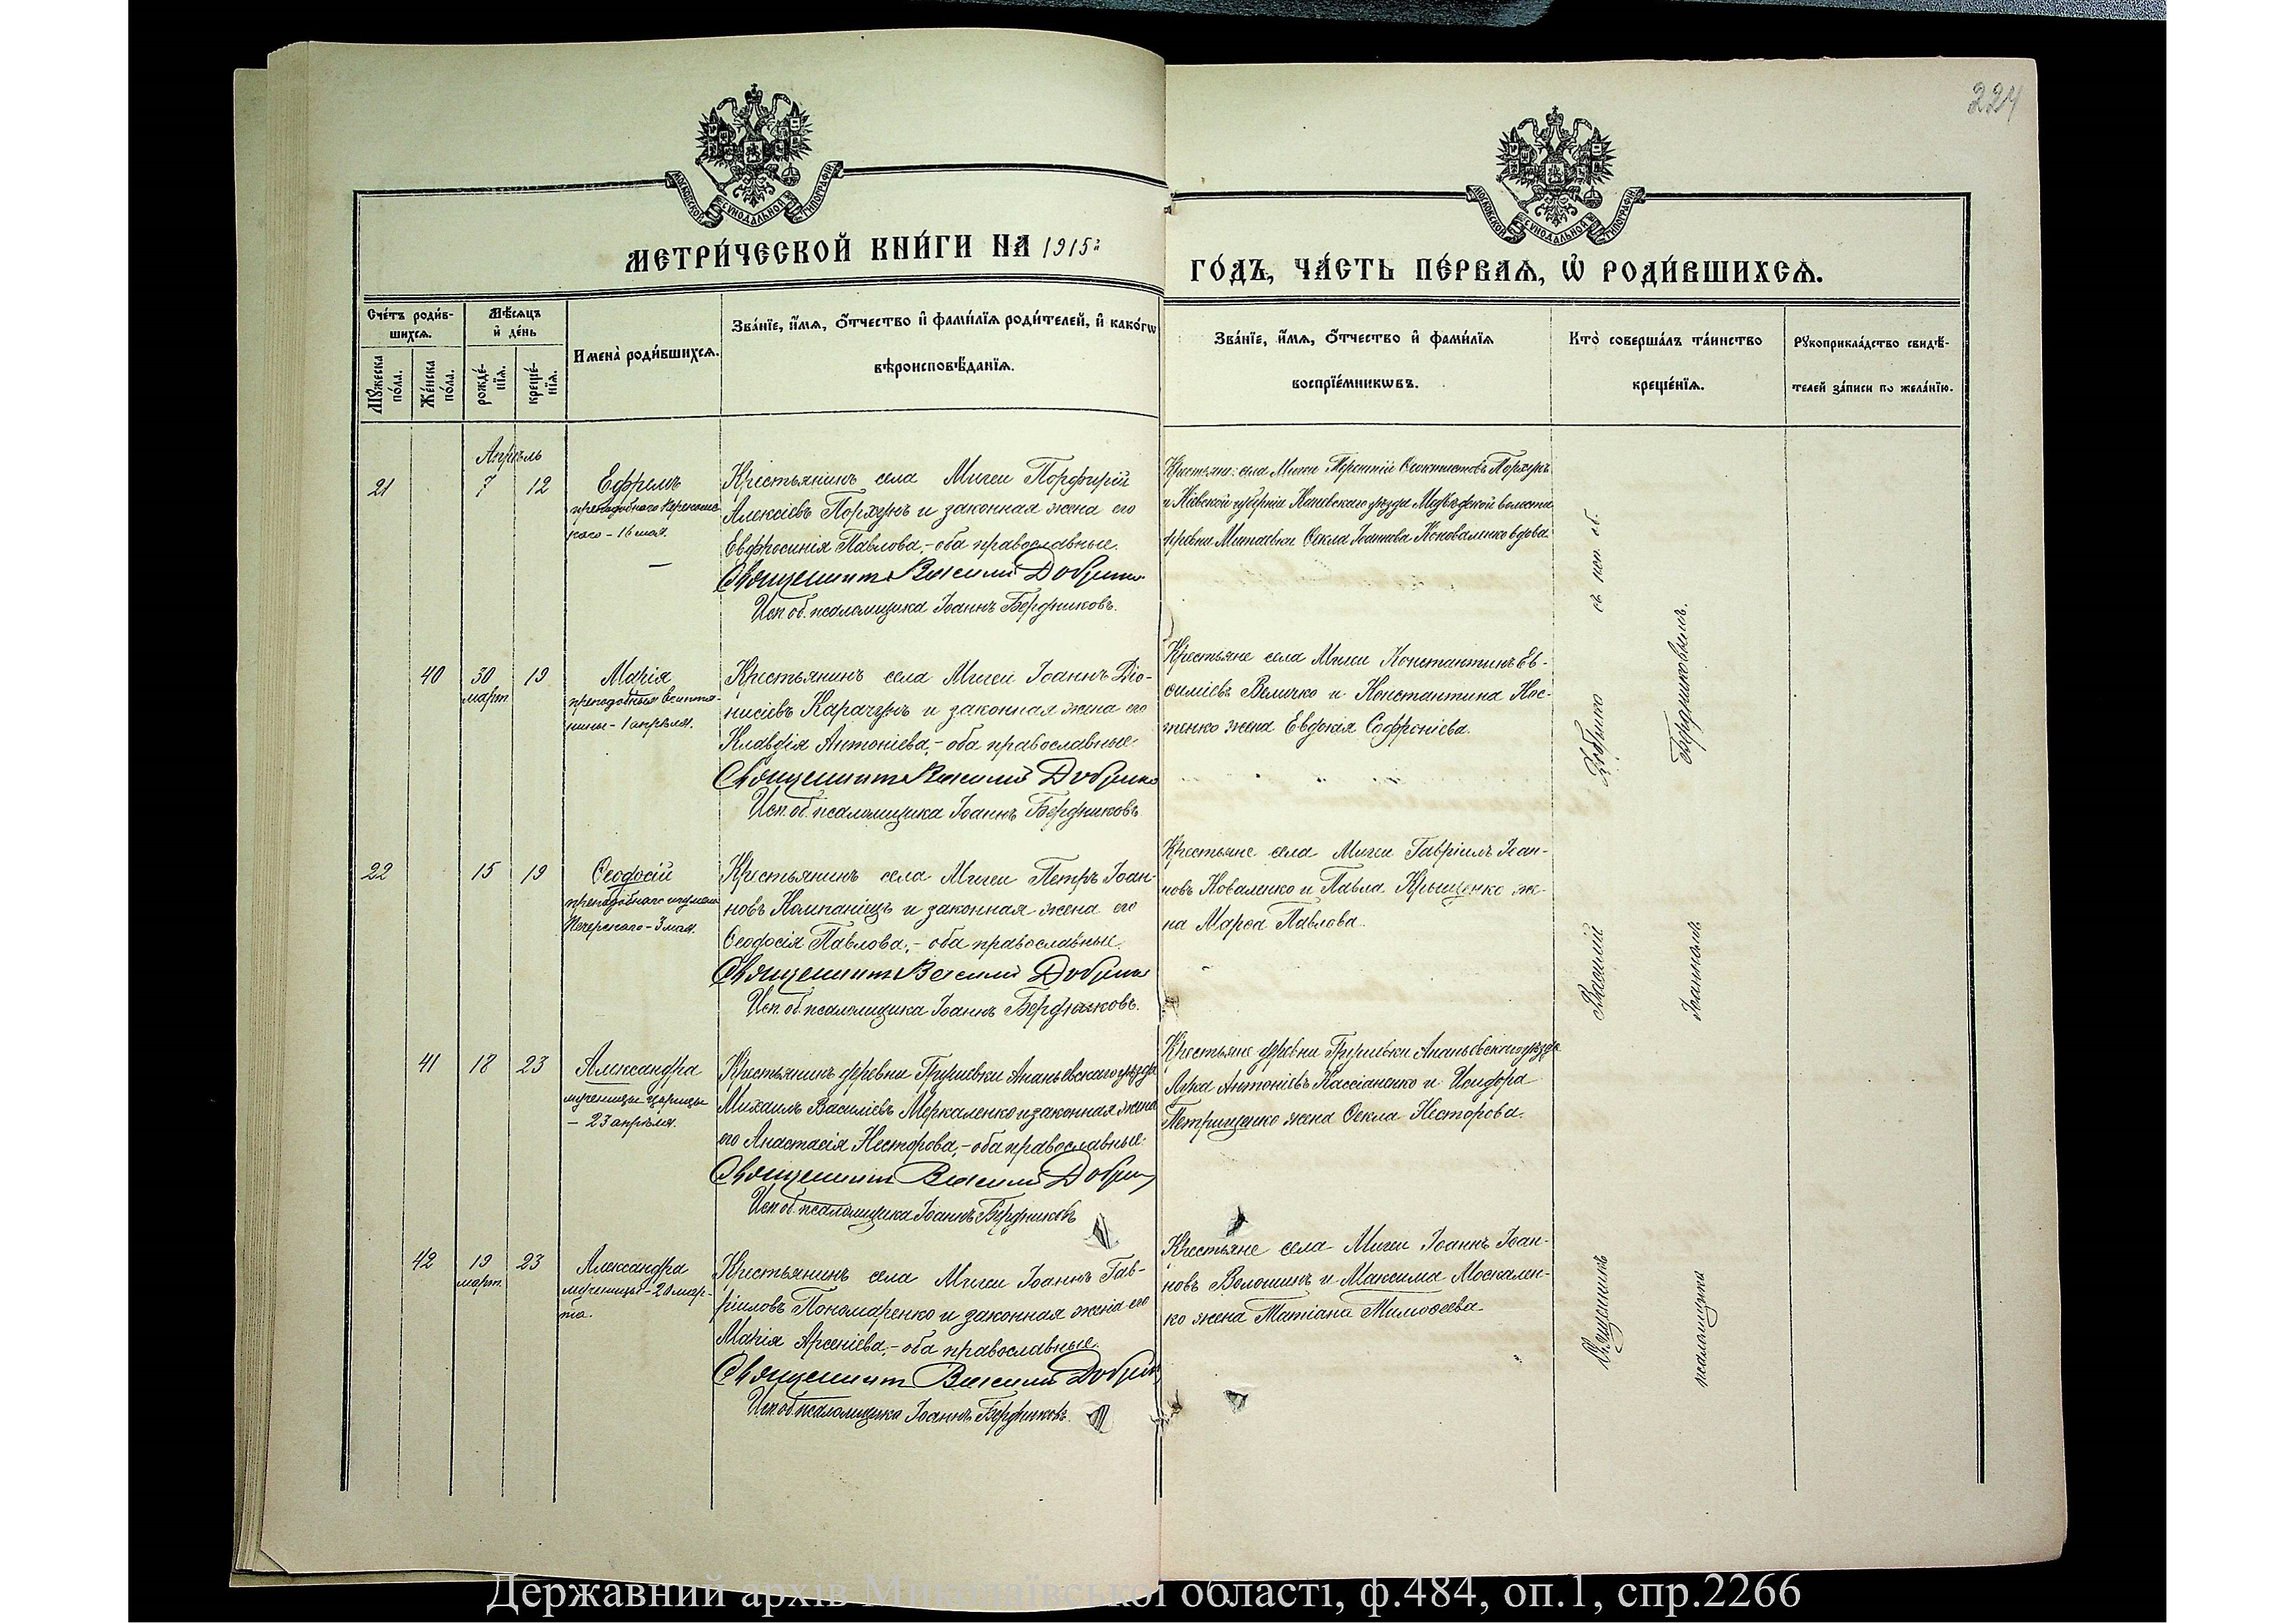 224
МОСКОВСКОЙ СѴНОДАЛЬНОЙ ТИПОГРАФІИ
МОСКОВСКОЙ СѴНОДАЛЬНОЙ ТИПОГРАФІИ
МЕТРИ́ЧЕСКОЙ КНИ́ГИ НА 1915 г.
ГО́ДЪ, ЧА́СТЬ ПЕ́РВАѦ, Ѡ҆ РОДИ́ВШИХСѦ.
Сче́тъ роди́в-
шихсѧ.
Мѣ́сѧцъ
и҆ де́нь
Имена̀ роди́вшихсѧ.
Зва́нїе, и҆́мѧ, ѻ҆́тчество и҆ фами́лїѧ роди́телей, и҆ како́гѡ
вѣроисповѣ́данїѧ.
Мꙋ́жеска
по́ла.
Же́нска
по́ла.
рожде́-
нїѧ.
креще́-
нїѧ.
Зва́нїе, и҆́мѧ, ѻ҆́тчество и҆ фами́лїѧ
воспрїе́мникѡвъ.
Кто̀ соверша́лъ та́инство
креще́нїѧ.
Рꙋкоприкла́дство свидѣ́-
телей за́писи по жела́нїю.
Апрѣль
21 7 12
Ефремъ
преподобнаго
- 16 мая.
Крестьянинъ села Мигеи Порфирій
Алексіевъ Порхунъ и законная жена его
Евфросинія Павлова, - оба православные.
Священникъ Василій Добрино
Исп. об. псаломщика Іоаннъ Бердниковъ.
Крестьяне: села Мигеи Терентій Ѳеоктистовъ Порхунъ
и Кіевской губерніи Каневскаго уѣзда волости
деревни Ѳекла Іоаннова Коноваленко вдова
40 30 19
март
Марія
преподобныя
- 1 апрѣля.
Крестьянинъ села Мигеи Іоаннъ Діо-
нисіевъ Карачунъ и законная жена его
Клавдія Антоніева, - оба православные.
Священникъ Василій Добрино
Исп. об. псаломщика Іоаннъ Бердниковъ
Крестьяне села Мигеи Константинъ Ев-
ѳиміевъ Величко и Константина Кос-
тенко жена Евдокія Софроніева.
22 15 19
Ѳеодосій
преподобнаго игумена
Печерскаго - 3 мая.
Крестьянинъ села Мигеи Петръ Іоан-
новъ Компаніецъ и законная жена его
Ѳеодосія Павлова, - оба православные.
Священникъ Василій Добрино
Исп. об. псаломщика Іоаннъ Бердниковъ.
Крестьяне села Мигеи Гавріилъ Іоан-
новъ Коваленко и Павла Крыщенко же-
на Марѳа Павлова.
41 18 23
Александра
мученицы царицы
- 23 апрѣля.
Крестьянинъ деревни Грушевки Ананьевскаго уѣзда
Михаилъ Василіевъ Меркаленко и законная жена
его Анастасія Несторова, - оба православные.
Священникъ Василій Добрино
Исп. об. псаломщика Іоаннъ Бердниковъ
Крестьяне деревни Грушевки Ананьевскаго уѣзда
Лука Антоніевъ Кассіаненко и Исидора
Петрищенко жена Ѳекла Несторова.
42 19 23
март
Александра
мученицы - 20 мар-
та.
Крестьянинъ села Мигеи Іоаннъ Гав-
ріиловъ Пономаренко и законная жена его
Марія Арсеніева, - оба православные.
Священникъ Василій Добрино
Исп. об. псаломщика Іоаннъ Бердниковъ.
Крестьяне села Мигеи Іоаннъ Іоан-
новъ Волошинъ и Максима Москален-
ко жена Татіана Тимоѳеева.
Священникъ Василій Добрино съ исп. об.
псаломщика Іоанномъ Бердниковымъ.
Державний архів Миколаївської області, ф.484, оп.1, спр.2266